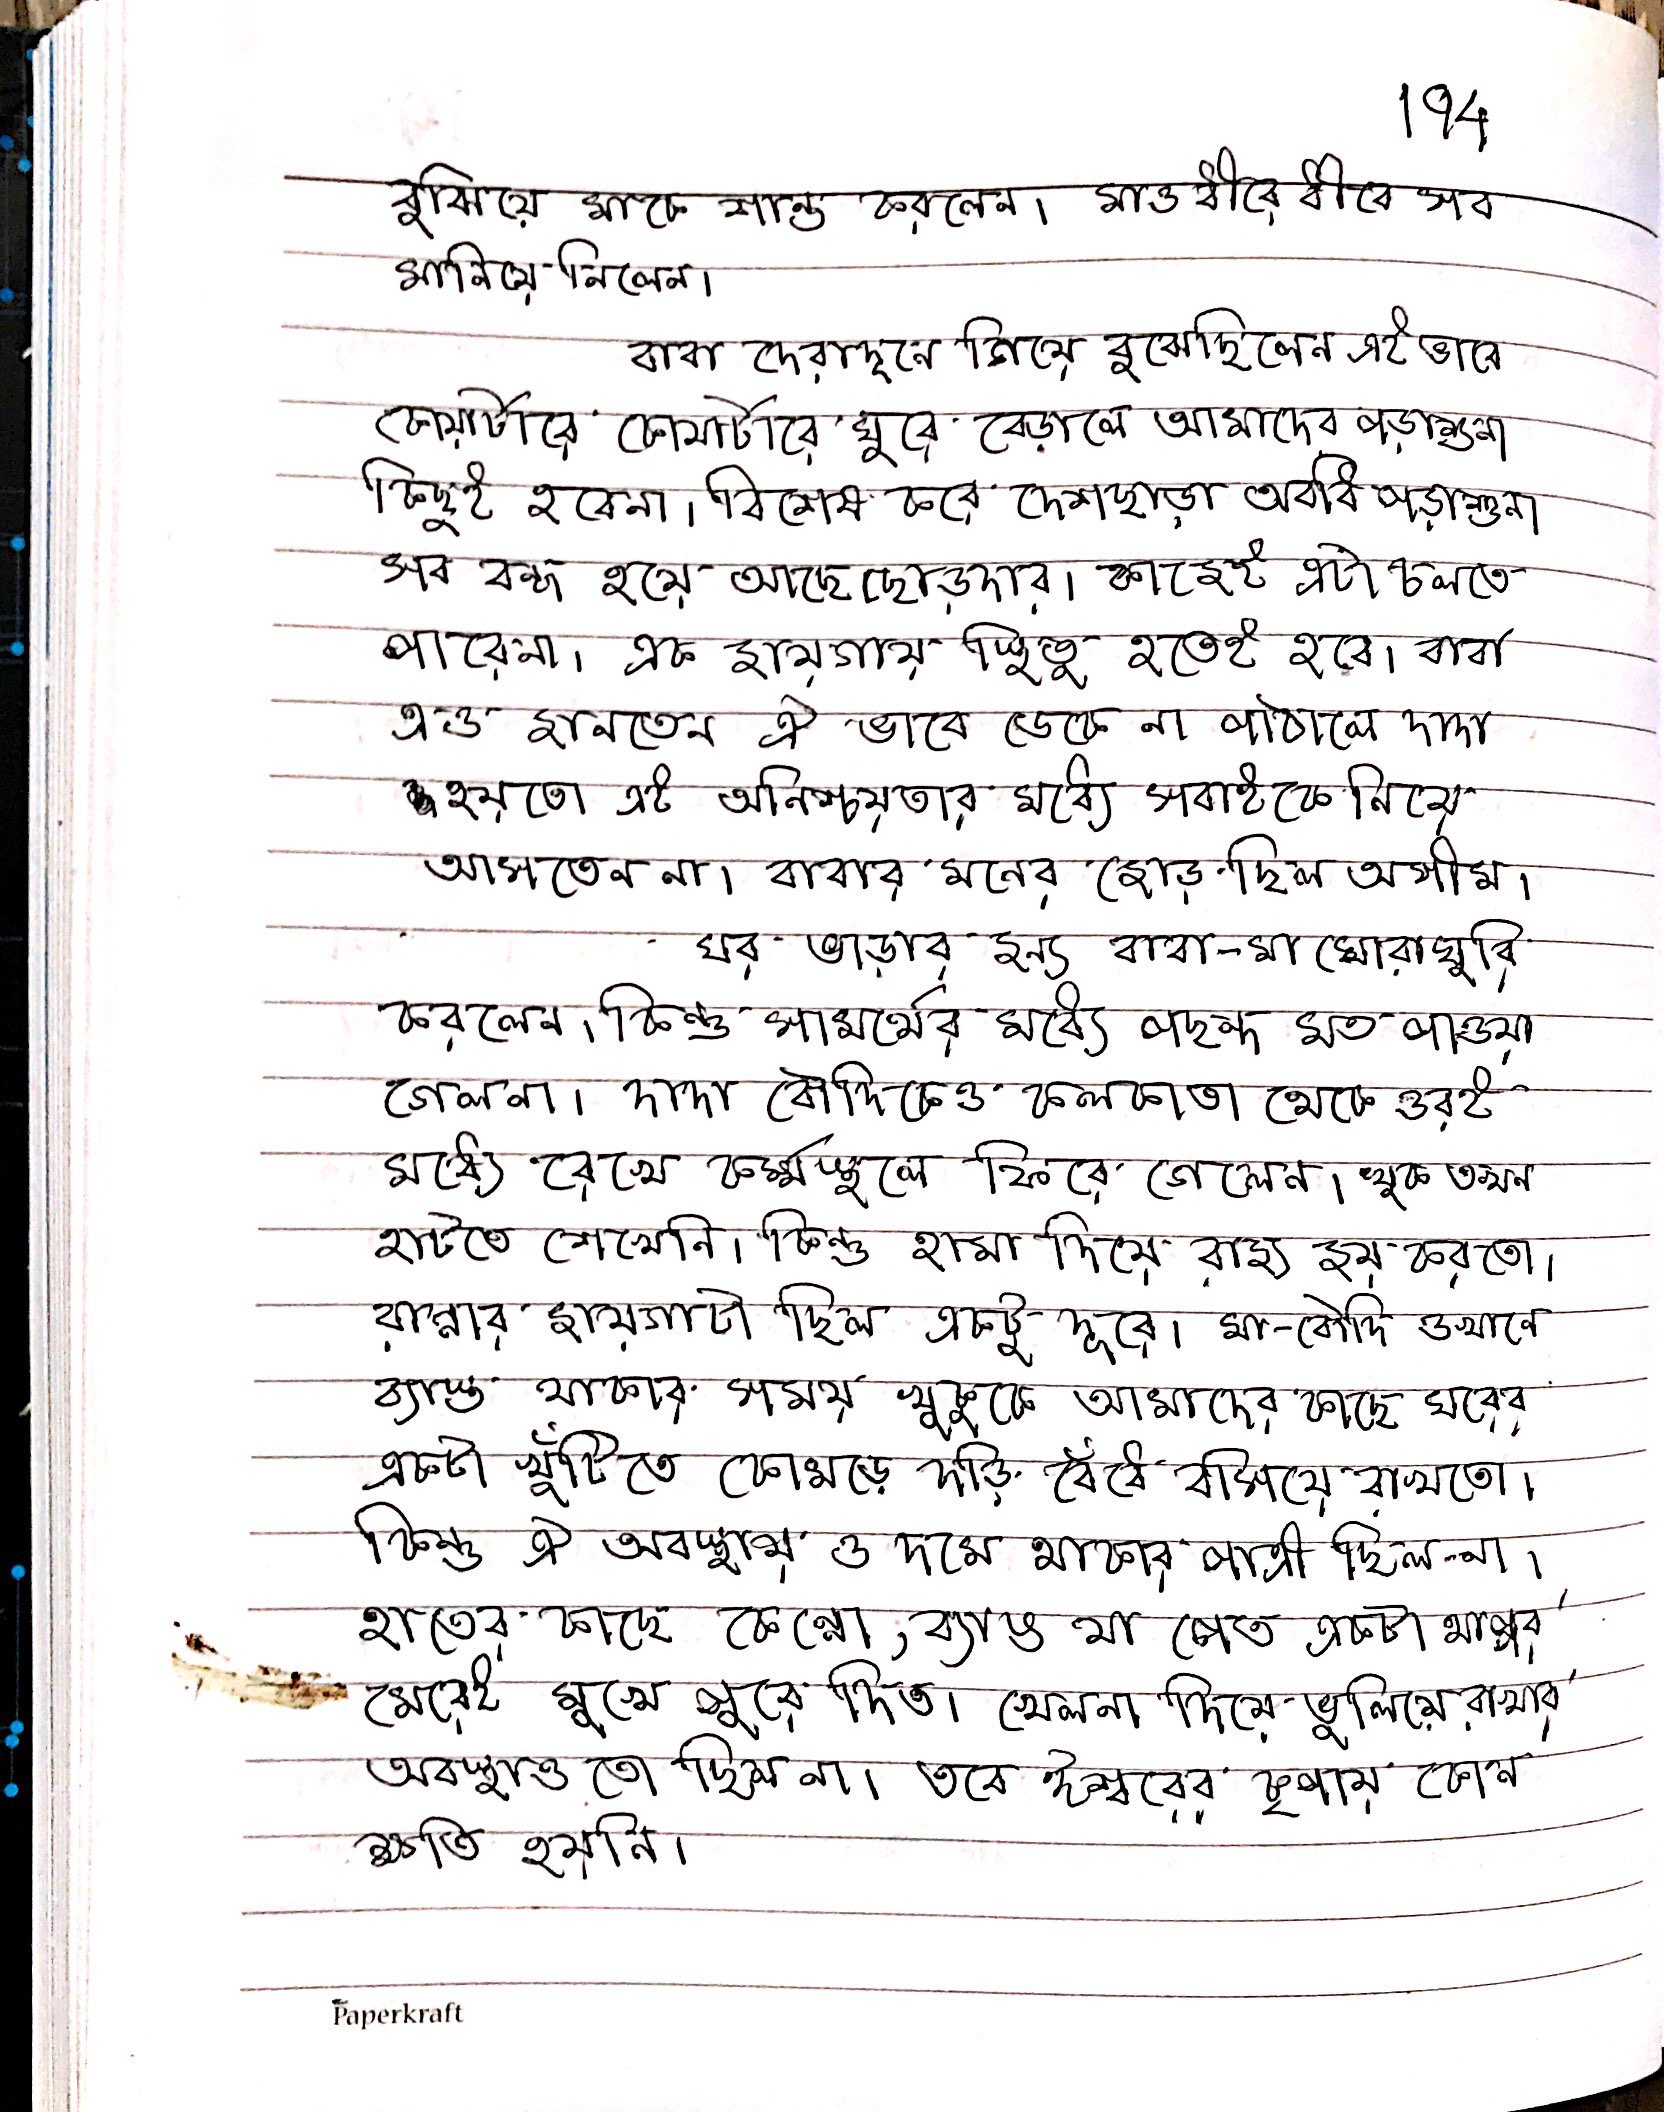 194
বুঝিয়ে মাকে শান্ত করলেন। মাও ধীরে ধীরে সব
মানিয়ে নিলেন।
বাবা দেরাদুনে গিয়ে বুঝেছিলেন এই ভাবে
কোয়ার্টারে কোয়ার্টারে ঘুরে বেড়ালে আমাদের পড়াশুনা
কিছুই হবেনা। বিশেষ করে দেশছাড়া অবধি পড়াশুনা
সব বন্ধ হয়ে আছে ছোড়দার। কাজেই এটা চলতে
পারেনা। এক জায়গায় স্থিতু হতেই হবে। বাবা
এও জানতেন ঐ ভাবে ডেকে না পাঠালে দাদা
হয়তো এই অনিশ্চয়তার মধ্যে সবাইকে নিয়ে
আসতেন না। বাবার মনের জোড় ছিল অসীম।
ঘর ভাড়ার জন্য বাবা-মা ঘোরাঘুরি
করলেন। কিন্তু সামর্থের মধ্যে পছন্দ মত পাওয়া
গেলনা। দাদা বৌদিকেও কলকাতা থেকে ওরই
মধ্যে রেখে কর্ম্মস্থলে ফিরে গেলেন। খুকু তখন
হাটতে শেখেনি। কিন্তু হামা দিয়ে রাজ্য জয় করতো।
রান্নার জায়গাটা ছিল একটু দূরে। মা-বৌদি ওখানে
ব্যাস্ত থাকার সময় খুকুকে আমাদের কাছে ঘরের
একটা খুঁটিতে কোমড়ে দড়ি বেঁধে বসিয়ে রাখতো।
কিন্তু ঐ অবস্থায় ও দমে থাকার পাত্রী ছিল-না।
হাতের কাছে কেন্নো, ব্যাঙ যা পেত একটা থাপ্পর
মেরেই মুখে পুরে দিত। খেলনা দিয়ে ভুলিয়ে রাখার
অবস্থাও তো ছিল না। তবে ঈশ্বরের কৃপায় কোন
ক্ষতি হয়নি।
Paperkraft